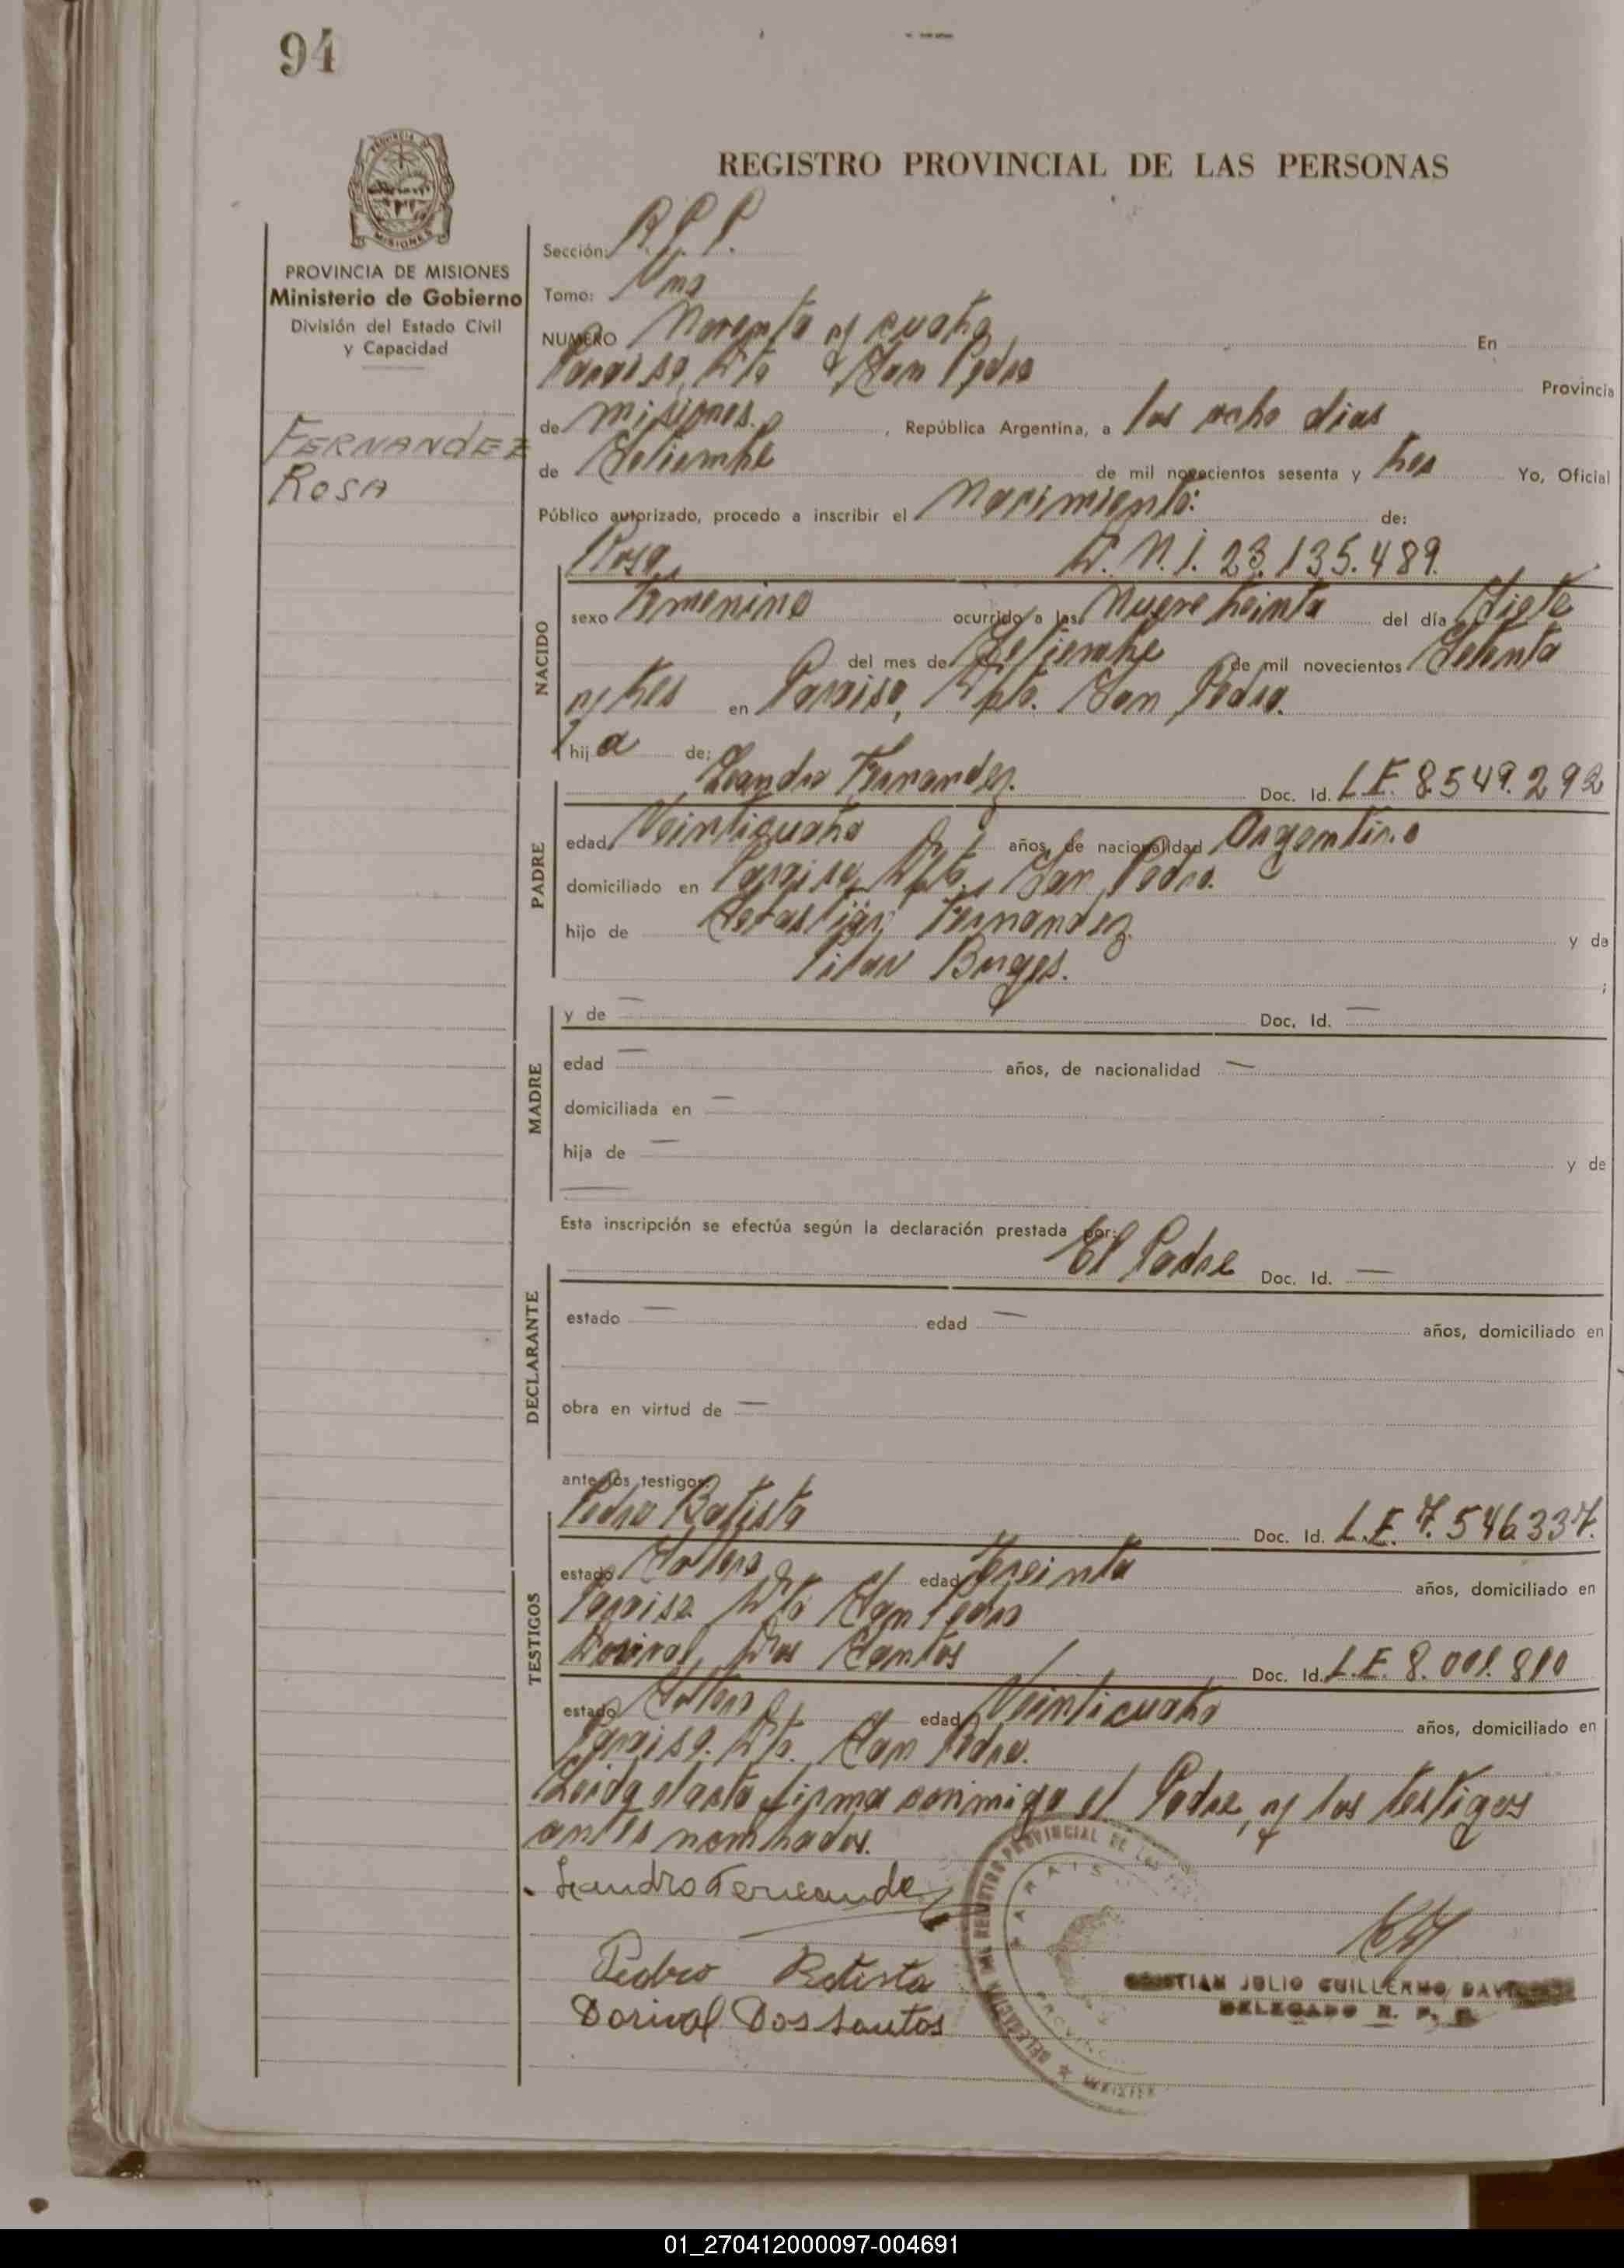 94
PROVINCIA DE MISIONES
Ministerio de Gobierno
División del Estado Civil
y Capacidad
FERNANDEZ
ROSA
REGISTRO PROVINCIAL DE LAS PERSONAS
Sección: R.P.P.
Tomo: Uno
NUMERO Noventa y cuatro En
Paraiso, Dto San Pedro Provincia
de Misiones. , República Argentina, a los ocho dias
de Setiembre de mil novecientos sesenta y tres Yo, Oficial
Público autorizado, procedo a inscribir el Nacimiento: de:
NACIDO
Rosa D.N.I. 23.135.489.
sexo Femenino ocurrido a las Nueve treinta del día Siete
del mes de Setiembre de mil novecientos Setenta
y tres en Paraiso, Dpto. San Pedro.
hij a de:
PADRE
Leandro Fernandez. Doc. Id. L.E. 8.549.292
edad Veinticuatro años, de nacionalidad Argentino
domiciliado en Paraiso, Dpto. San Pedro.
hijo de Sebastián Fernandez y de
Pilar Borges. ;
MADRE
y de — Doc. Id. —
edad — años, de nacionalidad —
domiciliada en —
hija de — y de
—
Esta inscripción se efectúa según la declaración prestada por:
DECLARANTE
El Padre Doc. Id. —
estado — edad — años, domiciliado en
obra en virtud de —
ante los testigos:
TESTIGOS
Pedro Batista Doc. Id. L.E. 7.546.337.
estado Soltero edad Treinta años, domiciliado en
Paraiso. Dto San Pedro
Dorival Dos Santos Doc. Id. L.E. 8.001.810
estado Soltero edad Veinticuatro años, domiciliado en
Paraiso. Dto. San Pedro.
Leida el acta firma conmigo el Padre, y los testigos
antes nombrados.
Leandro Fernandez
Pedro Batista
Dorival Dos Santos
DELEGACION DEL REGISTRO PROVINCIAL DE LAS
PARAISO
PROVINC
MISIONES
CRISTIAN JULIO GUILLERMO
DELEGADO R. P. P.
01_270412000097-004691